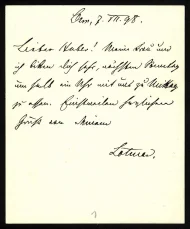 Bern, 7. III. 98.
Lieber Kubes! Meine Frau und
ich bitten dich sehr, nächsten Sonntag
um halb ein Uhr mit uns zu Mittag
zu essen. Einstweilen herzlichen
Gruß von Deinem
Lotmar.